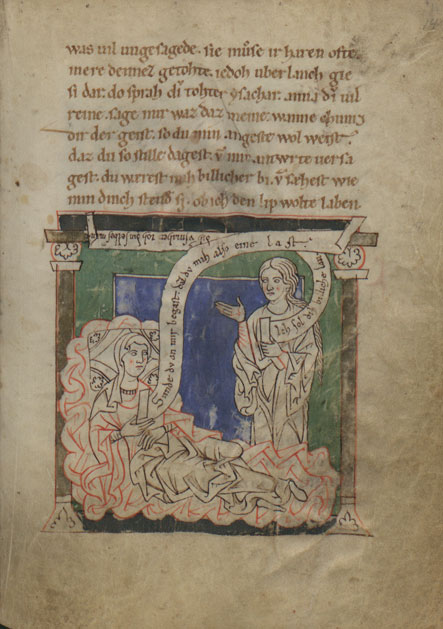 was uil ungesagede. sie můse ir haren ofte
mere dennez getohte. iedoh uber lauth gie
si dar. do sprah dv̓ tohter ysachar. anna dv̓ uil
reine. sage mir waz daz meine. wanne
dir der geist. so du min angeste wol weist.
daz du so stille dagest. vn̄ mir antwrte uersa
gest. du warest mih billicher bi. vn̄ sahest wie
min dinch stende si. ob ich den lip wolte laben
Sunde dv an mir begast. dv mih alse eine last.
Ich sol dih billiche